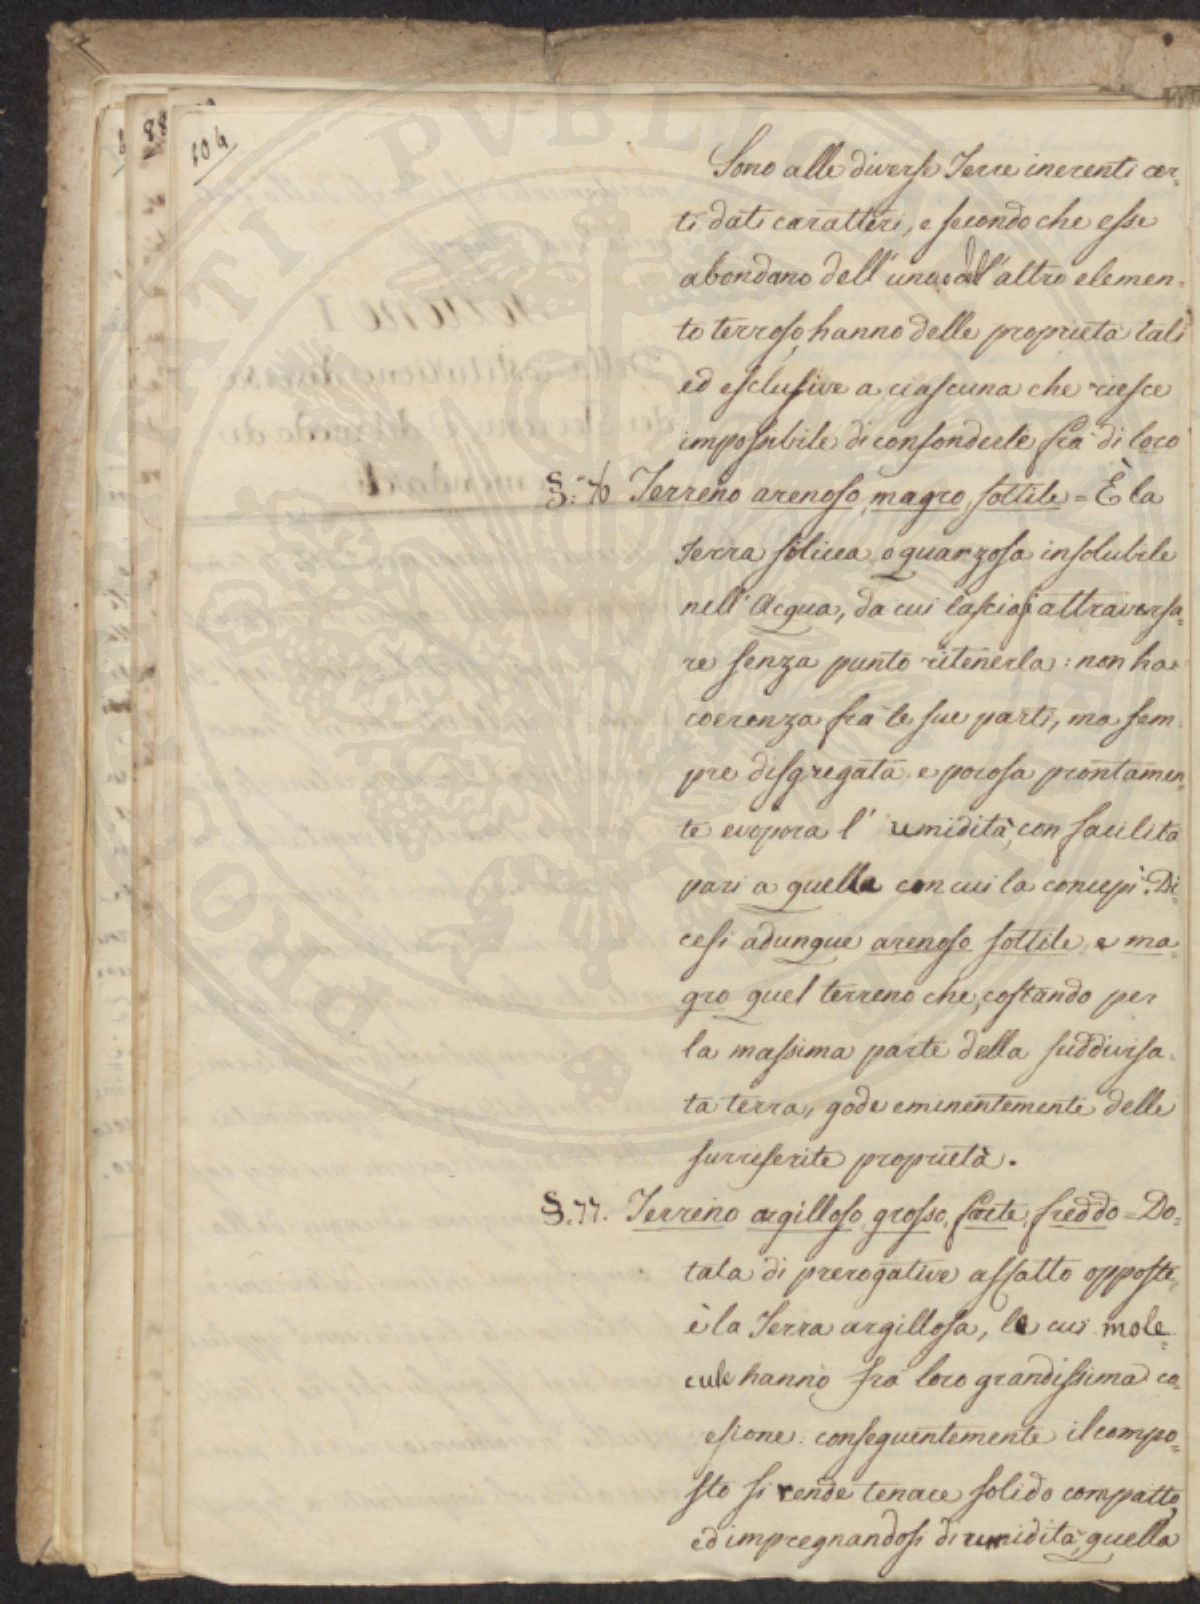 104
Sono alle diverse Terre inerenti cer-
ti dati caratteri, e secondo che esse
abondano dell'uno o dell'altro elemen-
to terroso, hanno delle proprietà tali
ed esclusive a ciascuna che riesce
impossibile di confonderle fra di loro
§. 76 Terreno arenoso, magro, sottile = È la
Terra silicea o quarzosa insolubile
nell'Acqua, da cui lasciasi attraversa=
re senza punto ritenerla: non ha
coerenza fra le sue parti, ma sem-
pre disgregata e porosa prontamen-
te evapora l' umidità, con facilità
pari a quella con cui la concepì. Di-
cesi adunque arenoso sottile e ma=
gro quel terreno che, costando per
la massima parte della suddivisa-
ta terra, gode eminentemente delle
surriferite proprietà.
§. 77. Terreno argilloso, grosso, forte, freddo = Do=
tata di prerogative affatto opposte,
è la Terra argillosa, le cui mole=
cule hanno fra loro grandissima co=
esione: conseguentemente il compo=
sto si rende tenace solido compatto,
ed impregnandosi di umidità, quella
88
PROPRIETATI PVBLICA